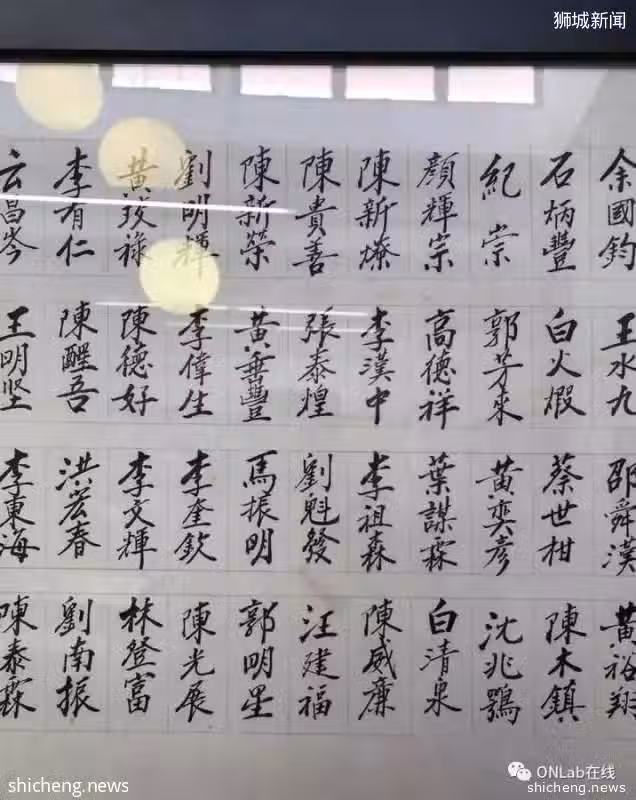 狮城新闻
余國鈞
石炳豐
紀崇
顏輝宗
陳新燎
陳貴善
陳新榮
劉明輝
黄祿
李有仁
云昌岑
王水九
白火煅
郭芳來
高德祥
李漢中
張泰煌
黄垂豐
李偉生
陳德好
陳醒吾
王明坚
邵舜漢
蔡世柑
黄奕彥
葉謀霖
李祖森
劉魁發
馬振明
李奎欽
李文輝
洪宏春
李東海
黄裕翔
陳木鎮
沈兆鶚
白清泉
陳威廉
汪建福
郭明星
陳光展
林登富
劉南振
陳泰霖
ONLab在线
shicheng.news
shicheng.news